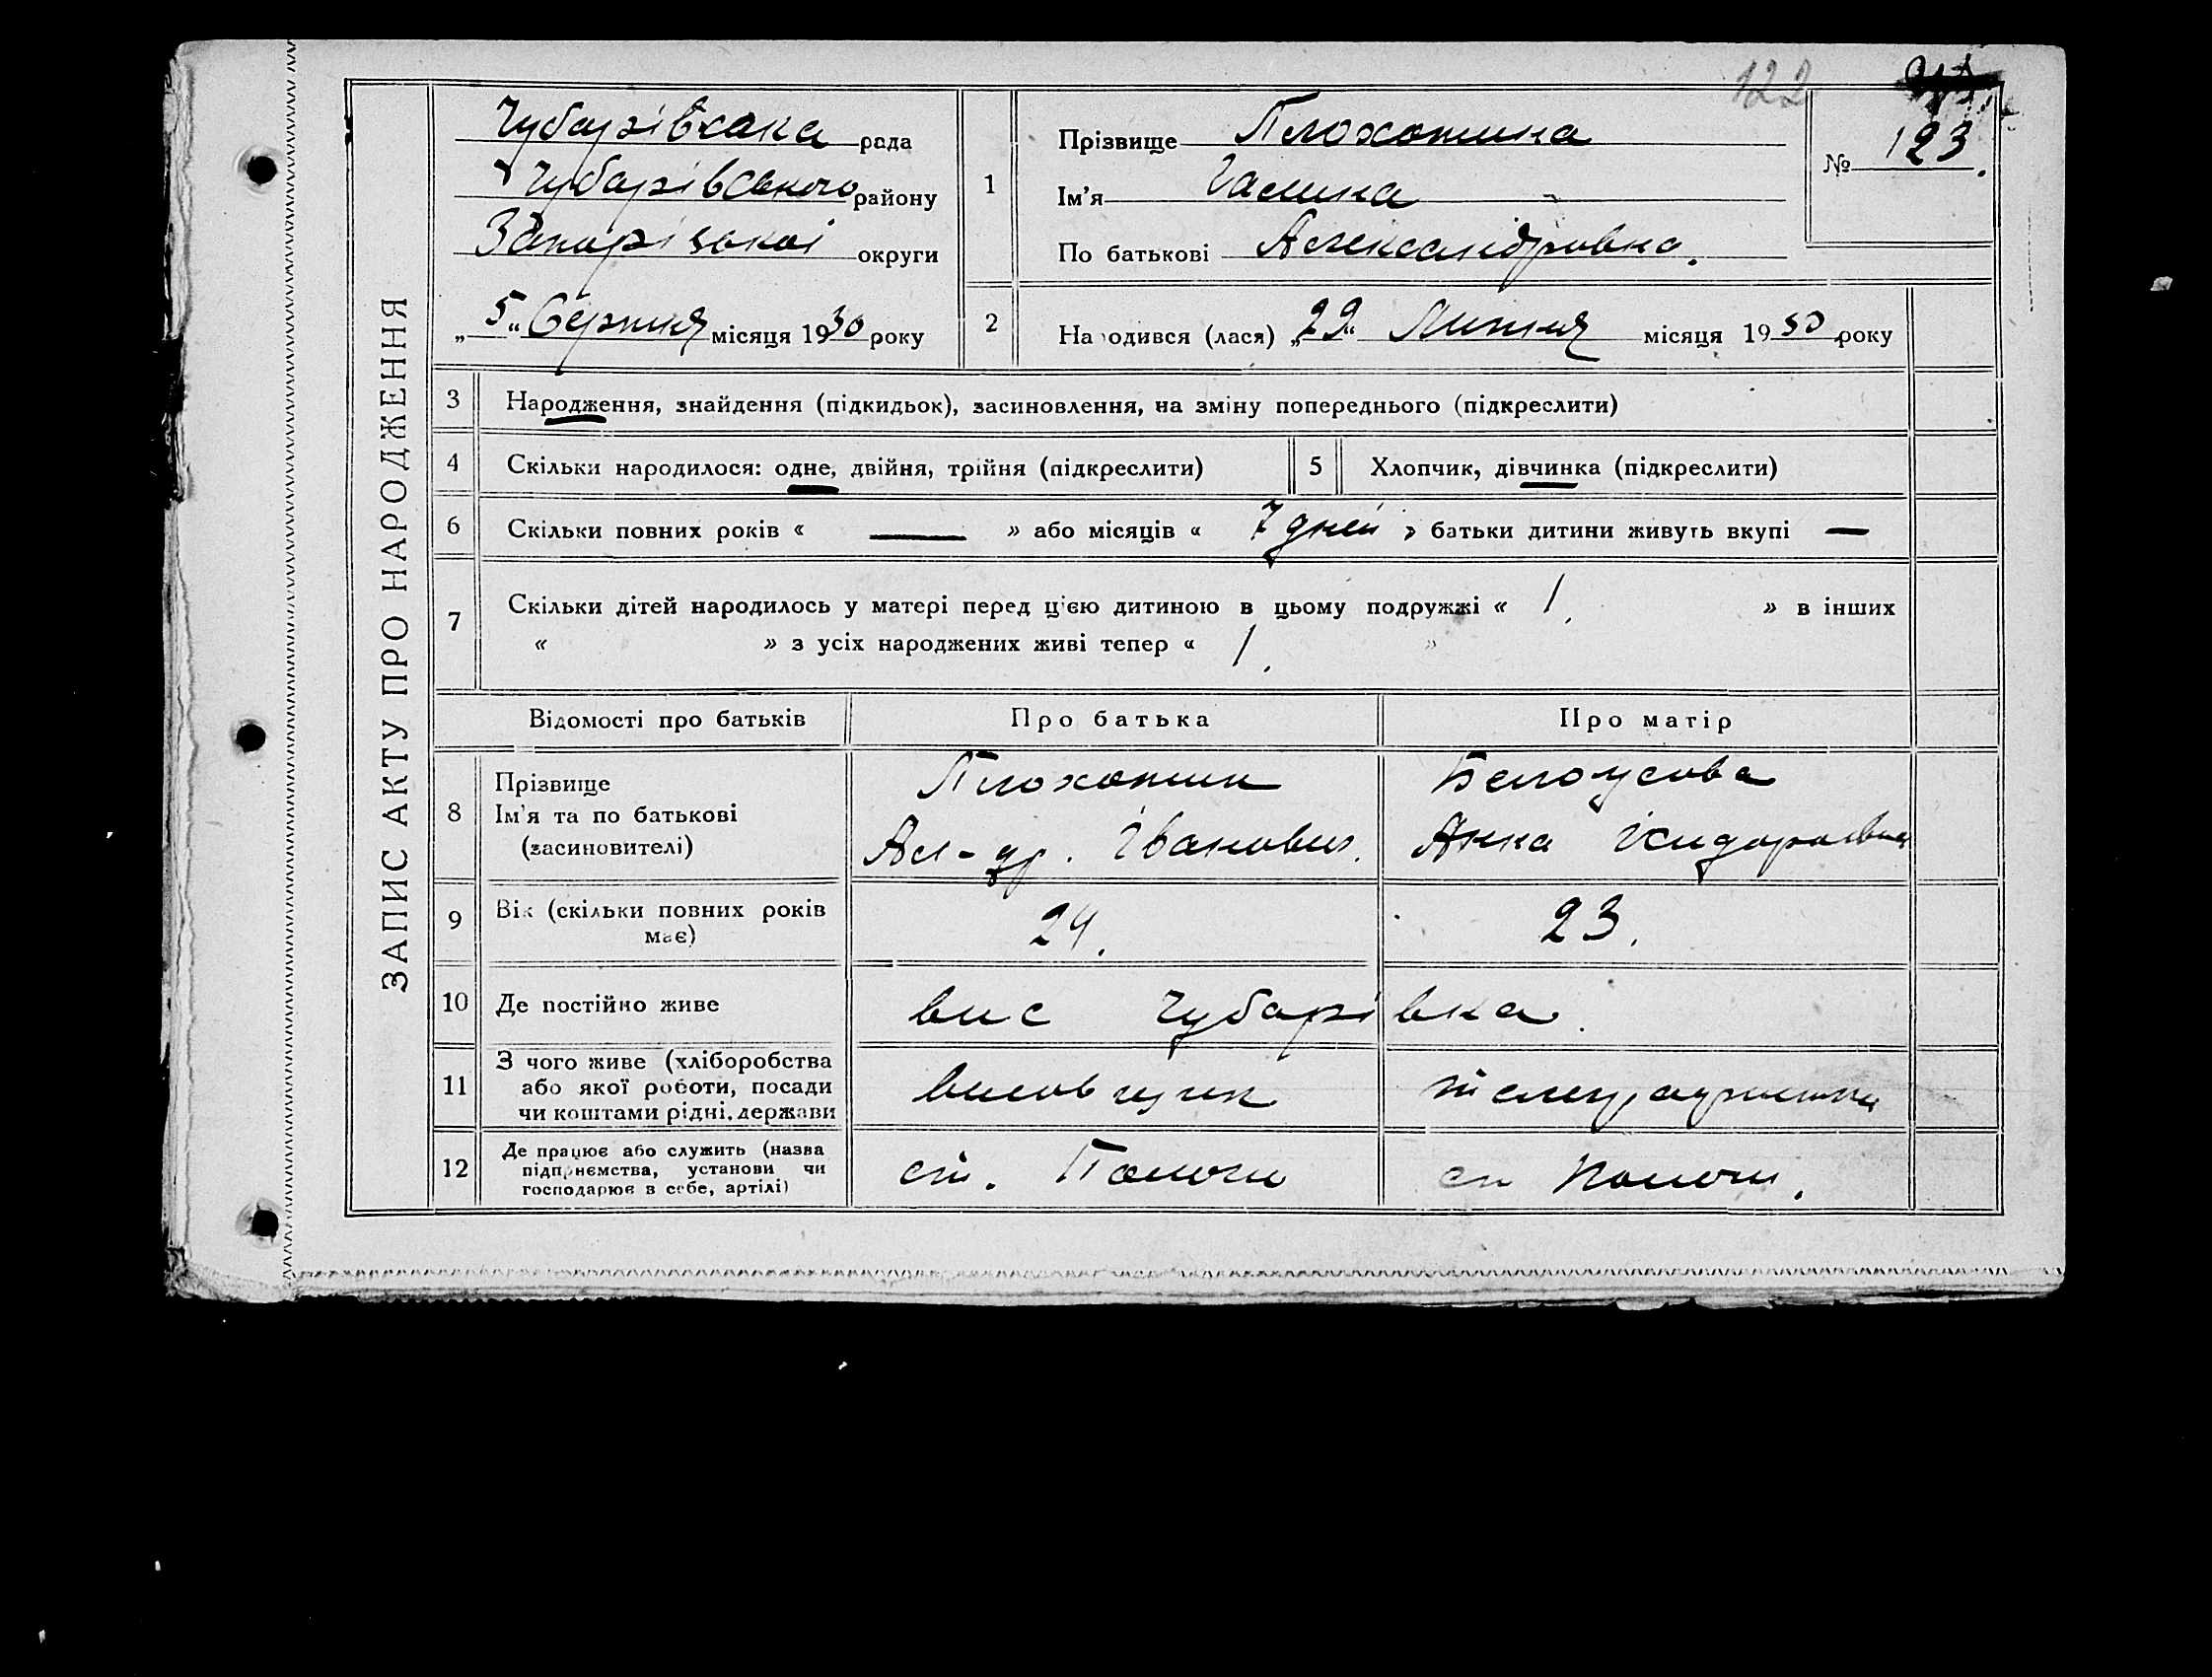 122
ЗАПИС АКТУ ПРО НАРОДЖЕННЯ
Чубарівська рада
Чубарівського району
Запорізької округи
„5“ Серпня місяця 1930 року
1
Прізвище Плохотина
Ім'я Галина
По батькові Александровна.
№ 123.
2
Народився (лася) „29“ Липня місяця 1930 року
3 Народження, знайдення (підкидьок), засиновлення, на зміну попереднього (підкреслити)
4 Скільки народилося: одне, двійня, трійня (підкреслити) 5 Хлопчик, дівчинка (підкреслити)
6 Скільки повних років « — » або місяців « 7 дней » батьки дитини живуть вкупі —
7 Скільки дітей народилось у матері перед цією дитиною в цьому подружжі « 1. » в інших
« » з усіх народжених живі тепер « 1. »
Відомості про батьків Про батька Про матір
8 Прізвище Плохотин Белоусова
Ім'я та по батькові Ал-др. Іванович. Анна Ісидоровна
(засиновителі)
9 Вік (скільки повних років 24. 23.
має)
10 Де постійно живе вис Чубарівка.
11 З чого живе (хліборобства
або якої роботи, посади
чи коштами рідні, держави
12 Де працює або служить (назва ст. Пологи ст Пологи.
підприємства, установи чи
господарює в себе, артілі)